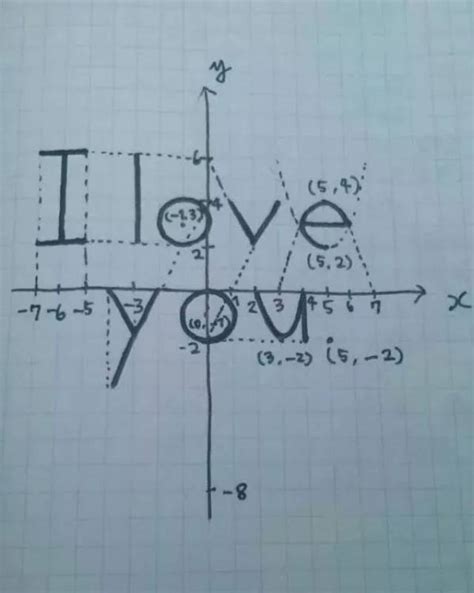 y
6
I love
(5,4)
4
(-1,3)
2
(5,2)
-7 -6 -5 -3 1 2 3 4 5 6 7 x
you
(0,-1)
-2
(3,-2) (5,-2)
-8